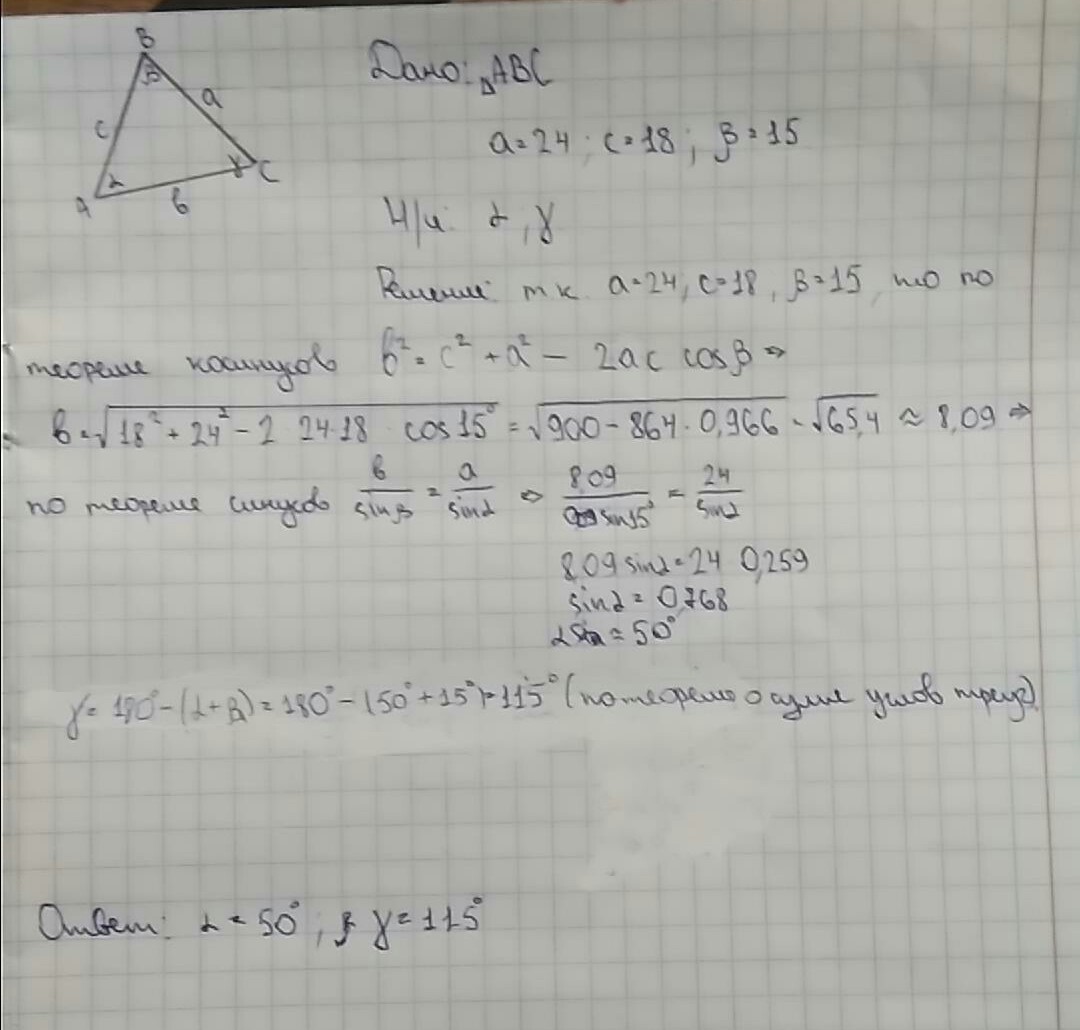 B
β
a
c
α
γ
C
A
b
Дано: △ABC
a=24; c=18; β=15
Н/и: α, γ
Решение: т к a=24, c=18, β=15, то по
теореме косинусов b² = c² + a² - 2ac cosβ ⇒
b=√18² + 24² - 2 24·18 cos 15° = √900 - 864 · 0,966 = √65,4 ≈ 8,09 ⇒
по теореме синусов b/sinβ = a/sinα ⇒ 8,09/sin15° = 24/sinα
8,09 sinα = 24 0,259
sinα = 0,768
α ≈ 50°
γ = 180° - (α+β) = 180° - (50° + 15°) = 115° (по теореме о сумме углов треуг)
Ответ: α = 50°; γ = 115°